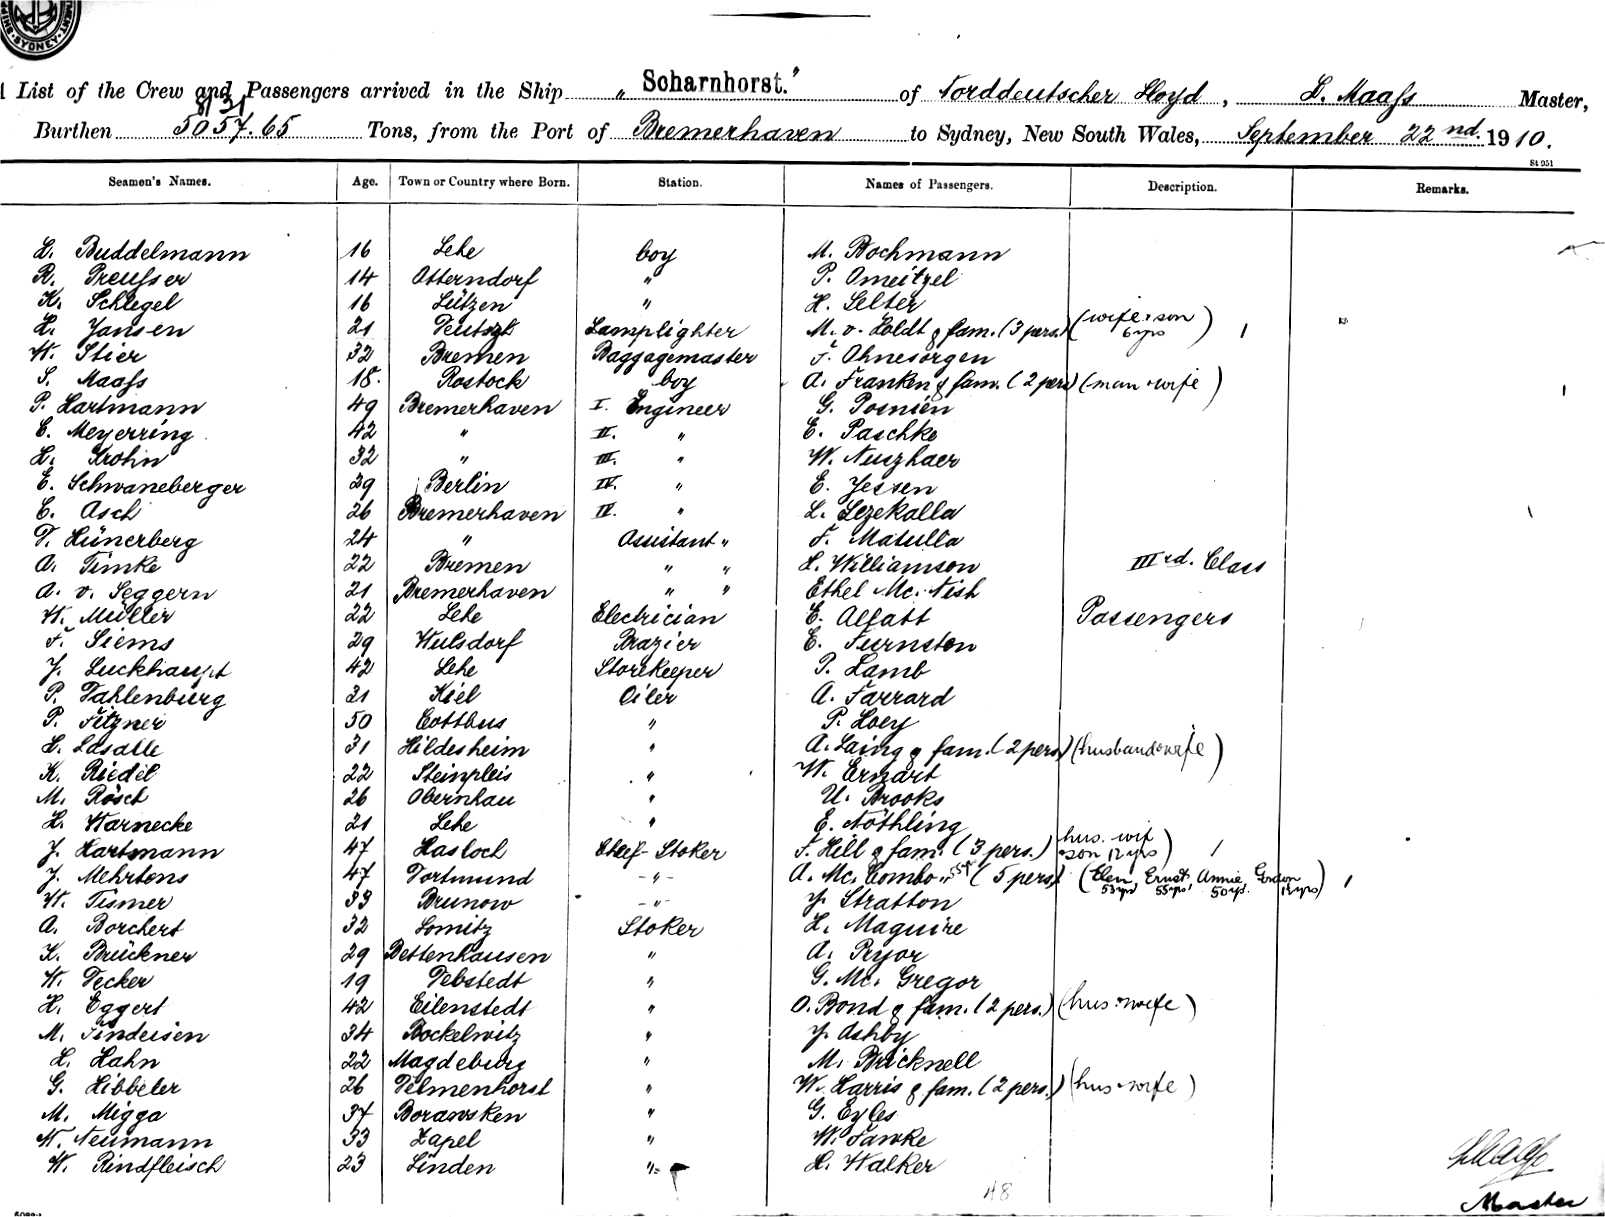 SYDNEY
List of the Crew and Passengers arrived in the Ship „ Scharnhorst." of Norddeutscher Lloyd, L. Maaß Master,
8131
Burthen 5057.65 Tons, from the Port of Bremerhaven to Sydney, New South Wales, September 22nd. 1910.
St 951
Seamen's Names. Age. Town or Country where Born. Station. Names of Passengers. Description. Remarks.
L. Buddelmann 16 Lehe boy M. Bochmann
R. Preußer 14 Otterndorf " P. Omeitzel
K. Schlegel 16 Lützen " H. Selter
H. Jansen 21 Lamplighter M. v. Holdt & fam. (3 pers.) (wife & son 6 yrs) 1
W. Stier 32 Bremen Baggagemaster F. Ohnesorgen
S. Maaß 18. Rostock boy A. Franken & fam. (2 pers) (man & wife)
P. Hartmann 49 Bremerhaven I. Engineer G. Posnien
E. Meyerring 42 " II. " E. Paschke
H. Krohn 32 " III. " W. Neuzhaer
E. Schwaneberger 29 Berlin IV. " E. Jessen
E. Asch 26 Bremerhaven IV. " L. Sezekalla
D. Hünerberg 24 " Assistant " F. Matulla
A. Timke 22 Bremen " " H. Williamson IIIrd. Class
A. v. Seggern 21 Bremerhaven " " Ethel Mc. Nish
W. Müller 22 Lehe Electrician E. Allatt Passengers
F. Siems 29 Wulsdorf Brazier E. Furnston
J. Luckhaupt 42 Lehe Storekeeper P. Lamb
P. Dahlenburg 21 Kiel Oiler A. Farrard
P. Fitzner 50 Cottbus " P. Hoey
L. Lasalle 31 Hildesheim " A. Laing & fam. (2 pers) (husband & wife)
K. Riedel 22 Steinpleis " W. Ernart
M. Rösch 26 Obernhau " U. Brooks
H. Warnecke 21 Lehe " E. Nöthling
J. Hartmann 47 Hasloch Chief-Stoker F. Hill & fam. (3 pers.) (hus. wif & son 12 yrs) 1
J. Mehrtens 47 Dortmund -"- A. Mc. Combo (5 pers) (Elen 53 yrs Ernst 55 yrs Annie 50 yrs. 12 yrs) 1
W. Tismer 33 Brunow -"- J. Stratton
A. Borchert 32 Lomitz Stoker H. Maguire
K. Brückner 29 Bettenhausen " A. Pryor
W. Decker 19 Debstedt " G. Mc. Gregor
H. Eggert 42 Eilenstedt " O. Bond & fam. (2 pers.) (hus. & wife)
M. Findeisen 34 Bockelwitz " J. Ashby
H. Hahn 22 Magdeburg " M. Bricknell
G. Hibbeler 26 Delmenhorst " W. Harris & fam. (2 pers.) (hus. & wife)
M. Migga 37 Borawsken " G. Eyles
N. Neumann 33 Zapel " W. Fawke
W. Rindfleisch 23 Linden " H. Walker
48
LMaaß
Master